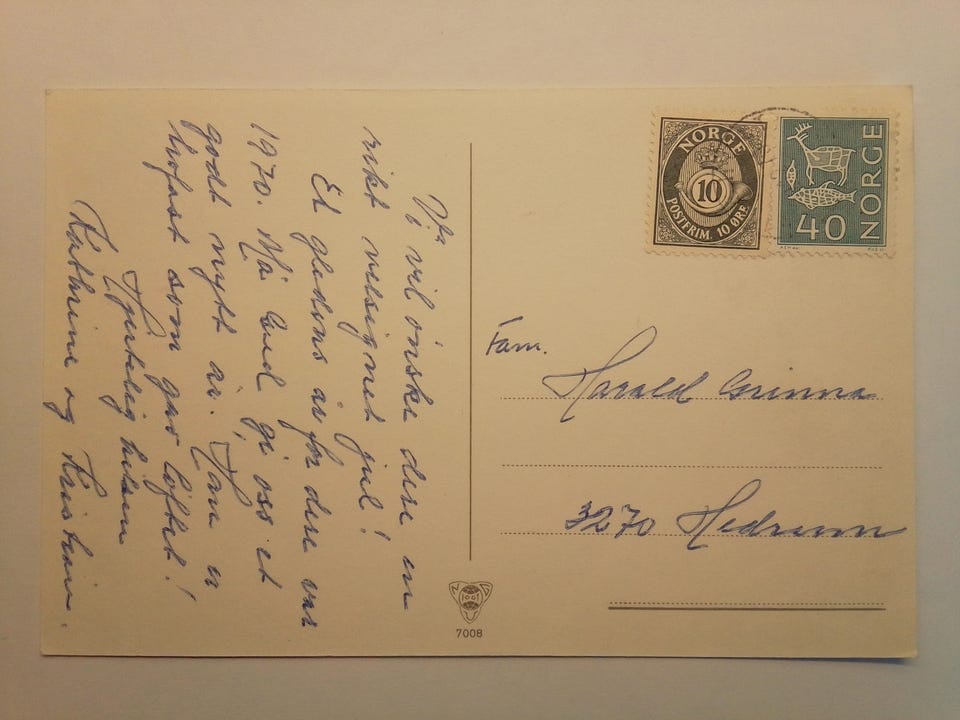 Vi vil ønske dere en
rikt velsignet jul!
Et gledens år for dere var
1970. Må Gud gi oss et
godt nytt år. Han er
trofast som gav løftet!
Hjertelig hilsen
Kathrine og Kristian.
NORGE
10
POSTFRIM. 10 ØRE
NORGE
40
Fam.
Harald Grinna
3270 Hedrum
7008